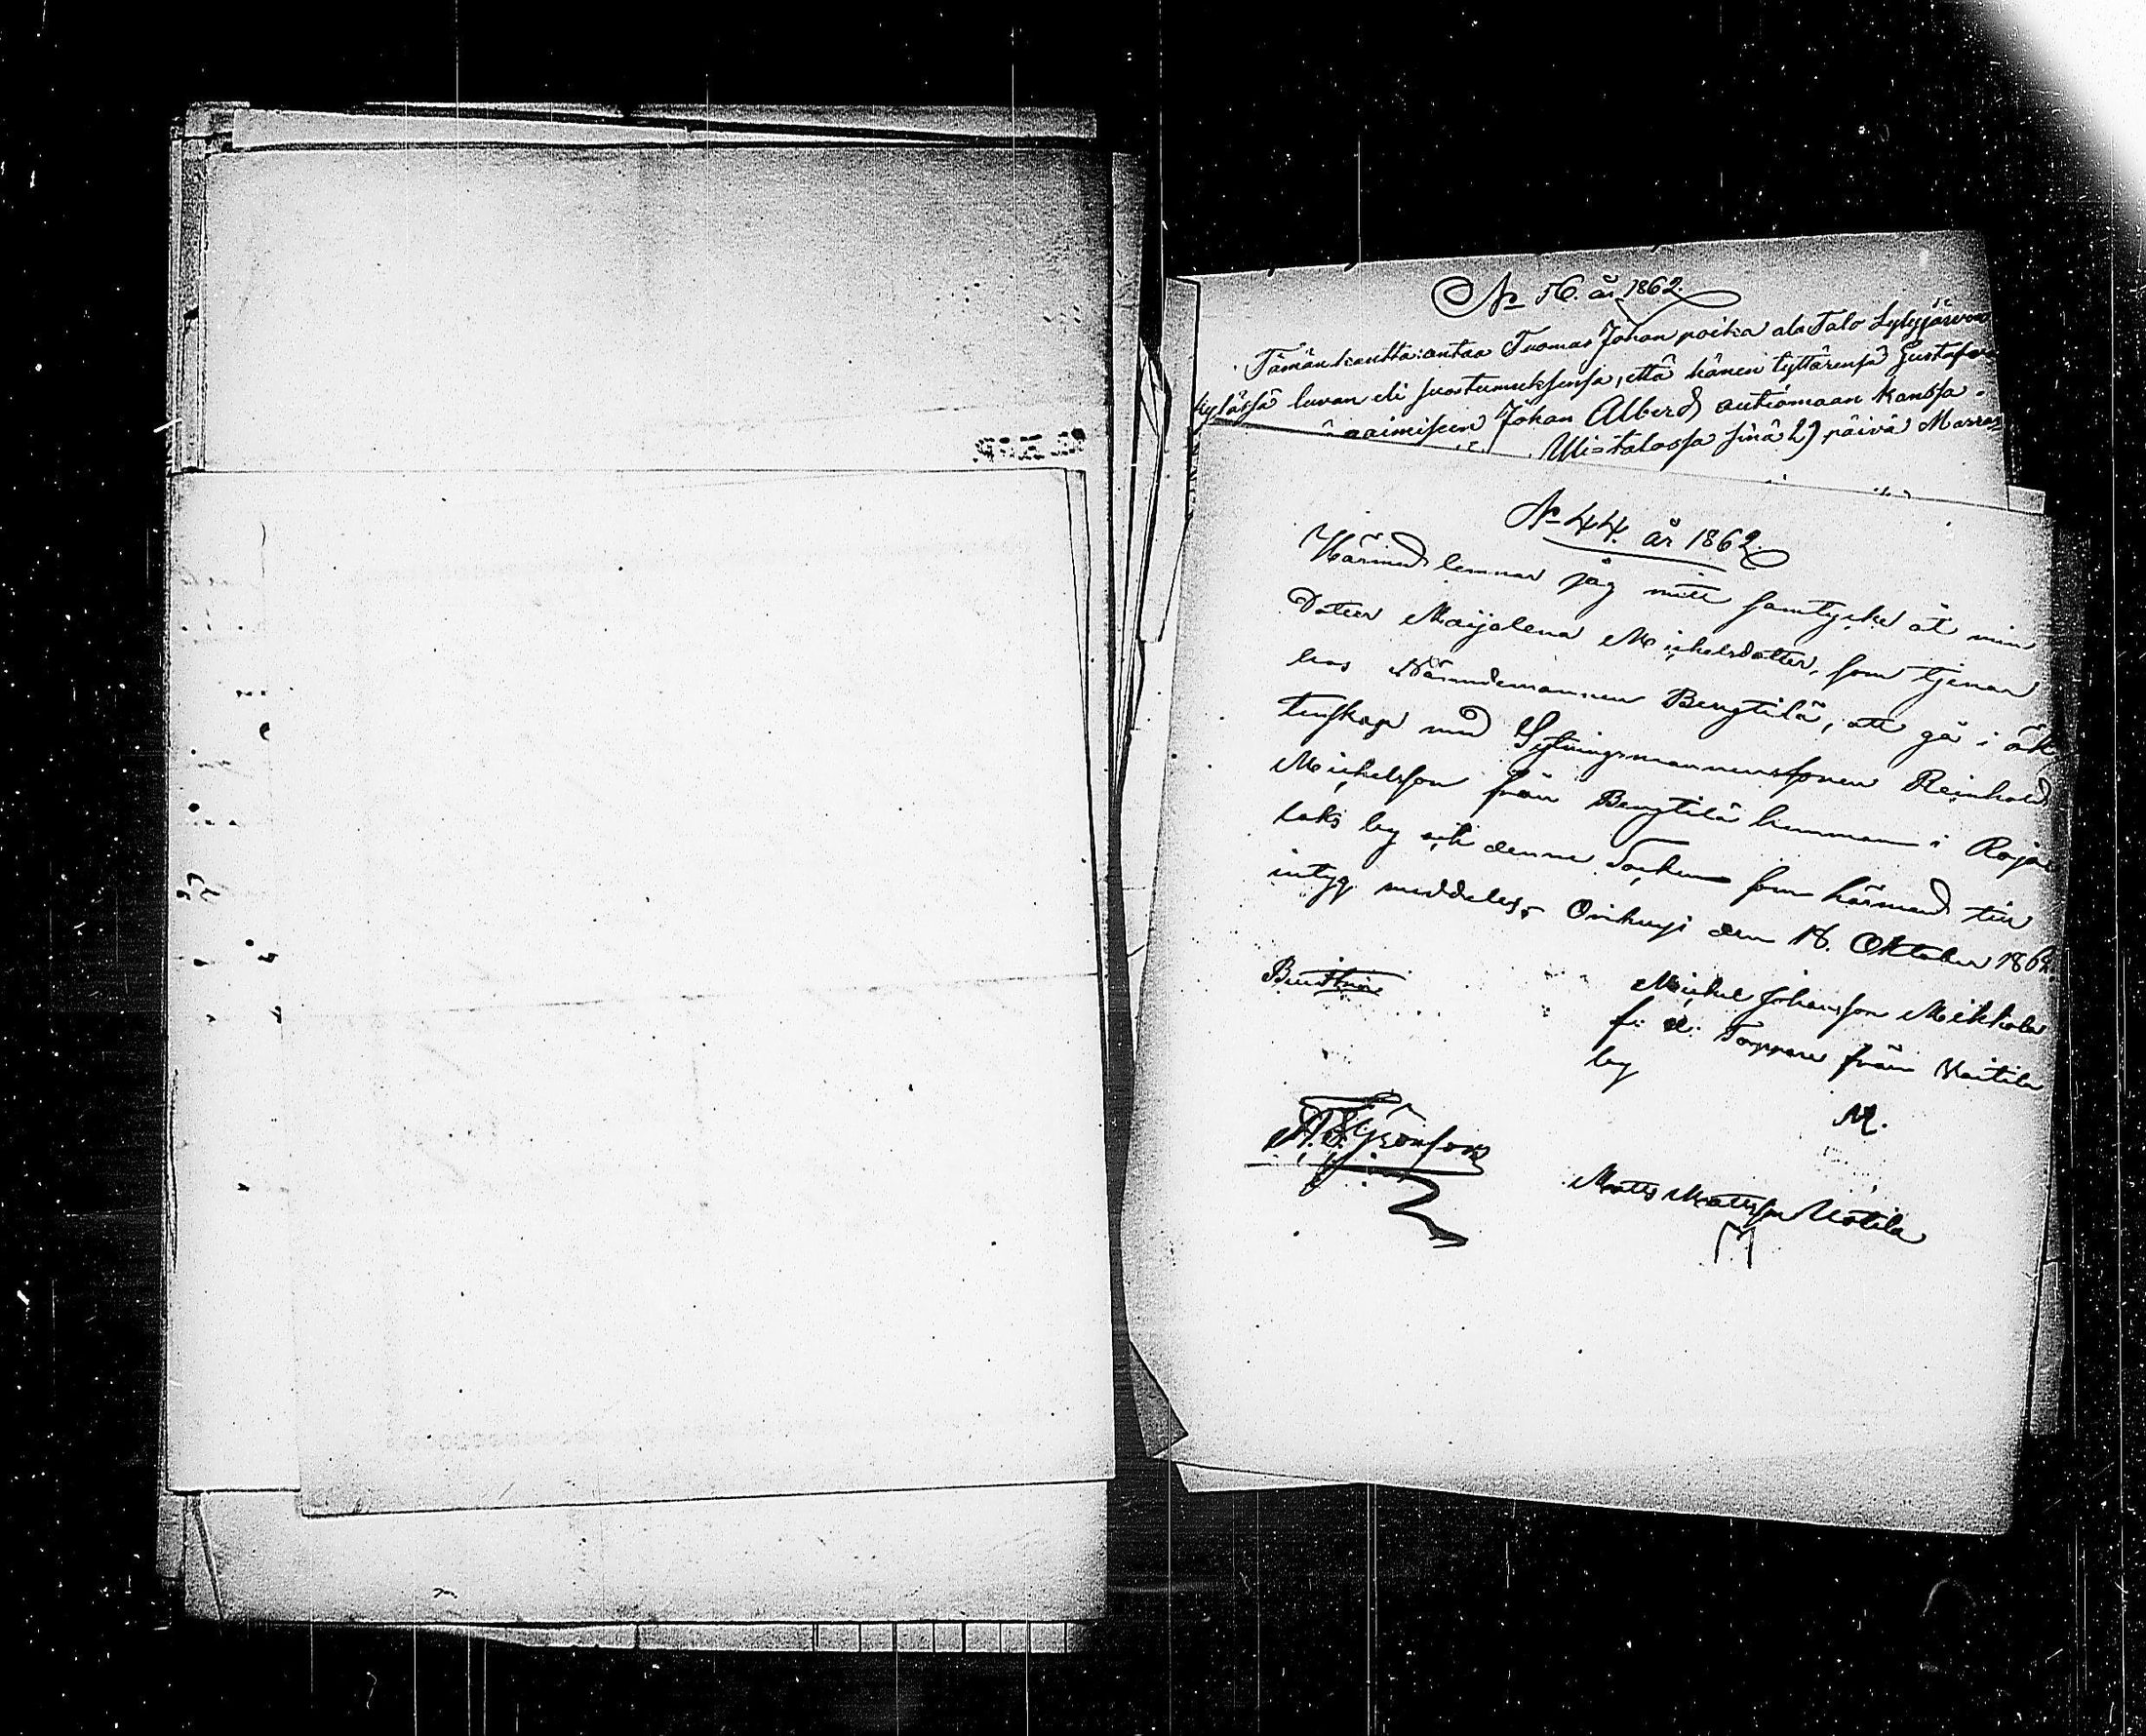 No 56. år 1862.
Tämän kautta antaa Tuomas Johan poika ala Talo Lylyjärven
kylässä luvan eli suostumuksensa, että hänen tyttärensä Gustafva
naimiseen Johan Alberd autiomaan kanssa
Uli=talossa sinä 29 päivä Marras
No 44. år 1862.
Härmed lemnar jag mitt samtycke åt min
Dotter Maijalena Michelsdotter, som tjenar
hos Nämndemannen Bengtilä, att gå i äk
tenskap med Sytningsmannenssonen Reinhold
Michelsson från Bengtilä hemman i Raja
laks by uti denne Socken som härmed till
intyg meddelas, Orihvesi den 16. Oktober 1862.
Bevittnar
Michel Johansson Mikkola
f. d. Torppare från Waitila
by
M.
Matts Mattsson Uotila